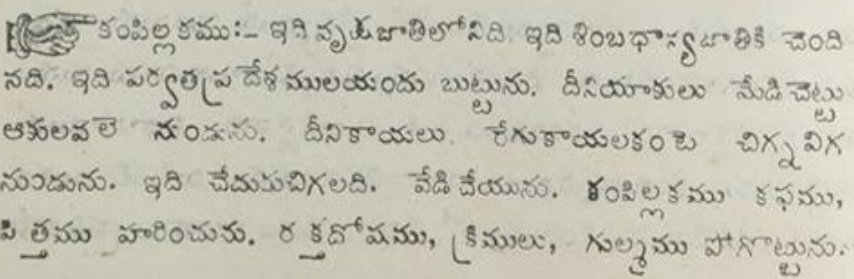 కంపిల్లకము:- ఇది వృక్షజాతిలోనిది. ఇది శింబధాన్యజాతికి చెంది
నది. ఇది పర్వతప్రదేశములయందు బుట్టును. దీనియాకులు మేడిచెట్టు
ఆకులవలె నుండును. దీనికాయలు రేగుకాయలకంటె చిగ్నవిగ
నుండును. ఇది చేదురుచిగలది. వేడి చేయును. కంపిల్లకము కఫము,
పిత్తము హరించును. రక్తదోషము, క్రిములు, గుల్మము పోగొట్టును.